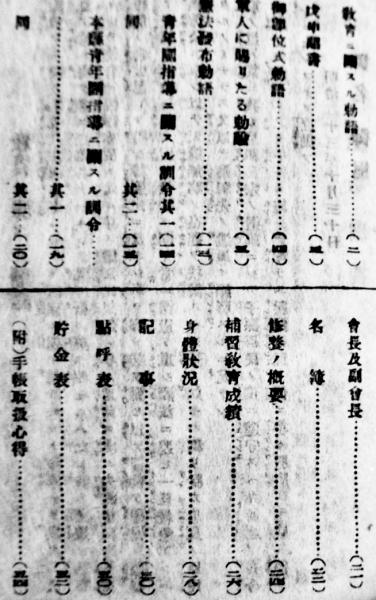 教育ニ關スル勅語……………(一)
戊申詔書……………(三)
御即位式勅語……………(四)
軍人に賜りたる勅諭……………(五)
憲法發布勅語……………(一三)
青年團指導ニ關スル訓令其一(一四)
同　其二(一五)
本縣青年團指導ニ關スル訓令……
……………其一(一九)
同　其二(二〇)
會長及副會長……………(二一)
名簿……………(二二)
修養ノ概要……………(二四)
補習敎育成績……………(二六)
身體狀況……………(二八)
記事……………(三〇)
點呼表……………(五〇)
貯金表……………(五二)
(附)手帳取扱心得……………(五四)